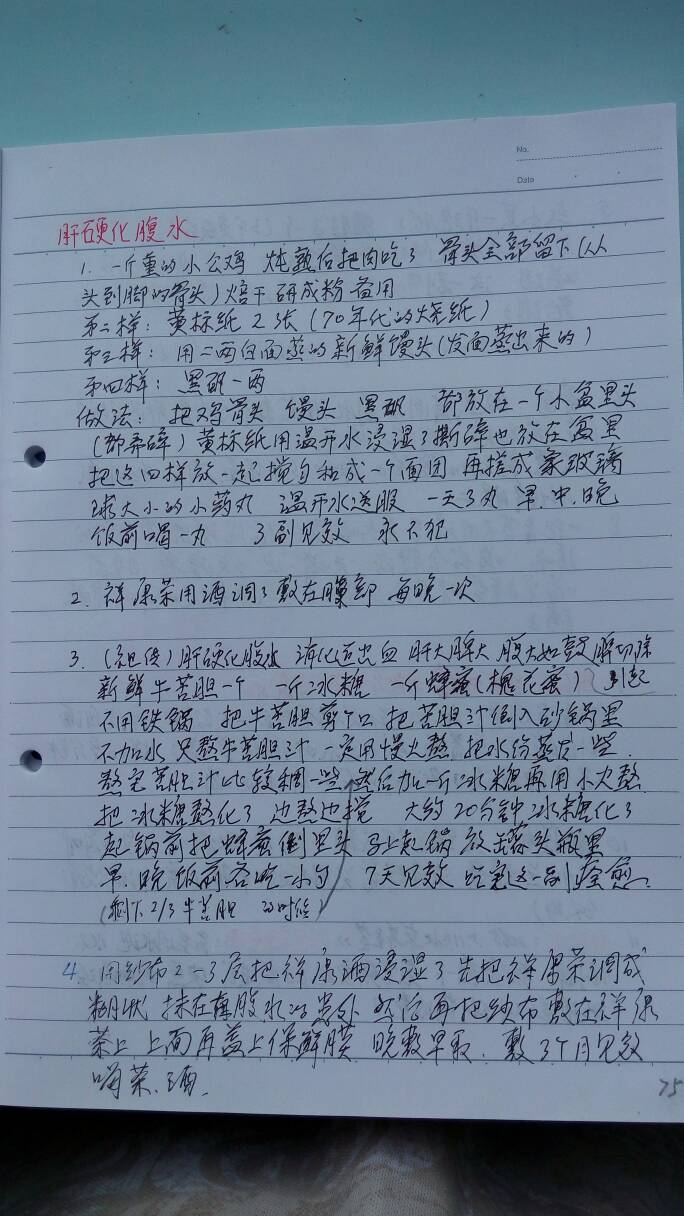 No.
Date
肝硬化腹水
1. 一斤重的小公鸡 炖熟后把肉吃了 骨头全部留下(从
头到脚的骨头)焙干研成粉 备用
第二样: 黄标纸2张(70年代的烧纸)
第三样: 用二两白面蒸的新鲜馒头(发面蒸出来的)
第四样: 黑矾一两
做法: 把鸡骨头 馒头 黑矾 都放在一个小盆里头
(都弄碎) 黄标纸用温开水浸湿了撕碎也放在盆里
把这四样放一起搅匀和成一个面团 再搓成象玻璃
球大小的小药丸 温开水送服 一天3丸 早.中.晚
饭前喝一丸 3副见效 永不犯
2. 祥康茶用酒调了敷在腹部 每晚一次
3. (祖传) 肝硬化腹水 消化道出血 肝大脾大 腹大如鼓 脾切除
新鲜牛苦胆一个 一斤冰糖 一斤蜂蜜(槐花蜜) 引起
不用铁锅 把牛苦胆剪个口 把苦胆汁倒入砂锅里
不加水 只熬牛苦胆汁 一定用慢火熬 把水份蒸发一些.
熬完苦胆汁比较稠一些 然后加一斤冰糖再用小火熬
把冰糖熬化了 边熬边搅 大约20分钟冰糖化了
起锅前把蜂蜜倒里头 马上起锅 放罐头瓶里
早.晚饭前各吃一小勺 7天见效 吃完这一副痊愈.
(剩下2/3牛苦胆 的时候)
4. 用纱布2-3层把祥康酒浸湿了 先把祥康茶调成
糊状 抹在有腹水的 然后再把纱布敷在祥康
茶上 上面再盖上保鲜膜 晚敷早取. 敷3个月见效
喝茶.酒.
75